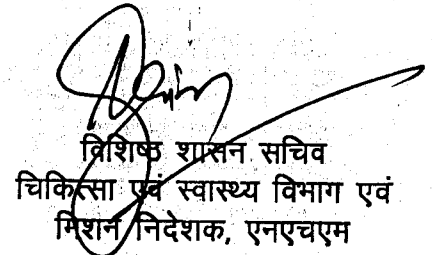 विशिष्ठ शासन सचिव
चिकित्सा एवं स्वास्थ्य विभाग एवं
मिशन निदेशक, एनएचएम